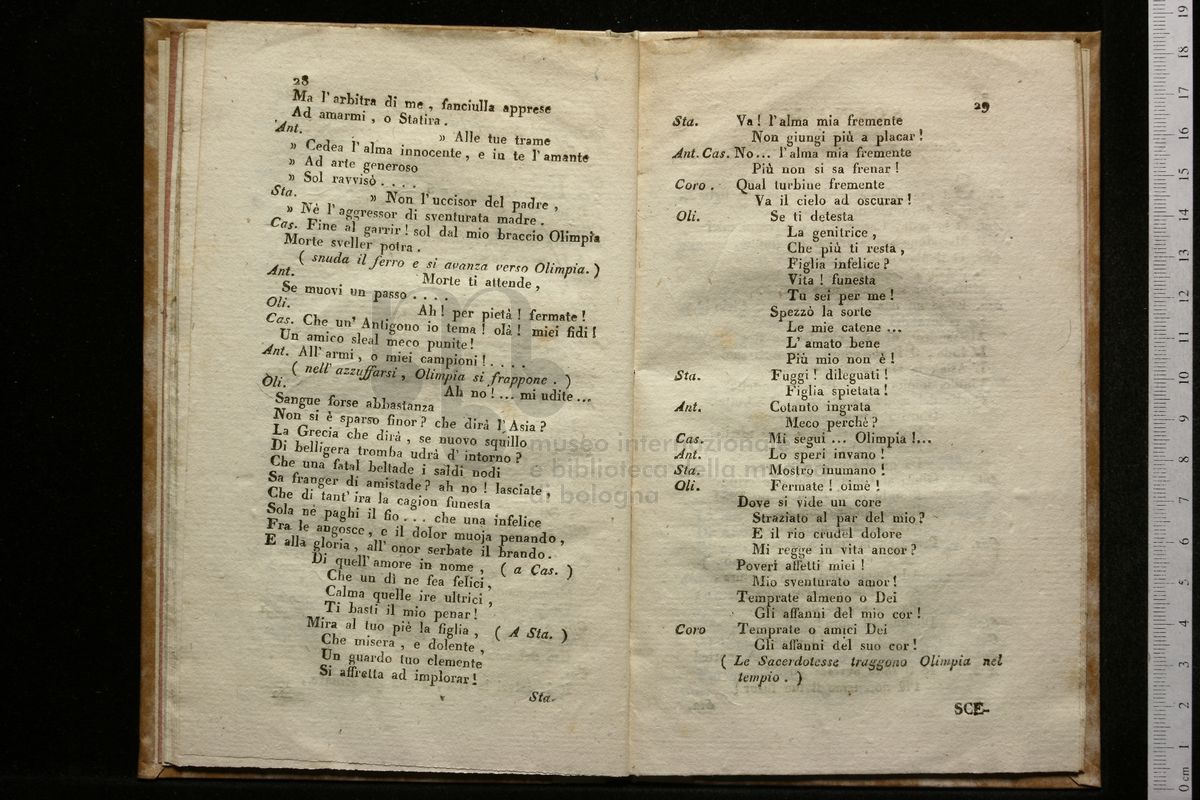 28
Ma l'arbitra di me, fanciulla apprese
Ad amarmi, o Statira.
Ant. » Alle tue trame
» Cedea l'alma innocente, e in te l'amante
» Ad arte generoso
» Sol ravvisò....
Sta. » Non l'uccisor del padre,
» Nè l'aggressor di sventurata madre.
Cas. Fine al garrir! sol dal mio braccio Olimpia
Morte sveller potra.
( snuda il ferro e si avanza verso Olimpia. )
Ant. Morte ti attende,
Se muovi un passo....
Oli. Ah! per pietà! fermate!
Cas. Che un' Antigono io tema! olà! miei fidi!
Un amico sleal meco punite!
Ant. All'armi, o miei campioni!....
( nell' azzuffarsi, Olimpia si frappone. )
Oli. Ah no!... mi udite...
Sangue forse abbastanza
Non si è sparso finor? che dirà l'Asia?
La Grecia che dirà, se nuovo squillo
Di belligera tromba udrà d'intorno?
Che una fatal beltade i saldi nodi
Sa franger di amistade? ah no! lasciate,
Che di tant'ira la cagion funesta
Sola ne paghi il fio... che una infelice
Fra le angosce, e il dolor muoja penando,
E alla gloria, all'onor serbate il brando.
Di quell'amore in nome, ( a Cas. )
Che un dì ne fea felici,
Calma quelle ire ultrici,
Ti basti il mio penar!
Mira al tuo piè la figlia, ( A Sta. )
Che misera, e dolente,
Un guardo tuo clemente
Si affretta ad implorar!
Sta.
29
Sta. Va! l'alma mia fremente
Non giungi più a placar!
Ant. Cas. No... l'alma mia fremente
Più non si sa frenar!
Coro. Qual turbine fremente
Va il cielo ad oscurar!
Oli. Se ti detesta
La genitrice,
Che più ti resta,
Figlia infelice?
Vita! funesta
Tu sei per me!
Spezzò la sorte
Le mie catene...
L'amato bene
Più mio non è!
Sta. Fuggi! dileguati!
Figlia spietata!
Ant. Cotanto ingrata
Meco perchè?
Cas. Mi segui... Olimpia!...
Ant. Lo speri invano!
Sta. Mostro inumano!
Oli. Fermate! oimè!
Dove si vide un core
Straziato al par del mio?
E il rio crudel dolore
Mi regge in vita ancor?
Poveri affetti miei!
Mio sventurato amor!
Temprate almeno o Dei
Gli affanni del mio cor!
Coro Temprate o amici Dei
Gli affanni del suo cor!
( Le Sacerdotesse traggono Olimpia nel
tempio. )
SCE-
museo internazionale
e biblioteca della m
di bologna
0 cm 1 2 3 4 5 6 7 8 9 10 11 12 13 14 15 16 17 18 19